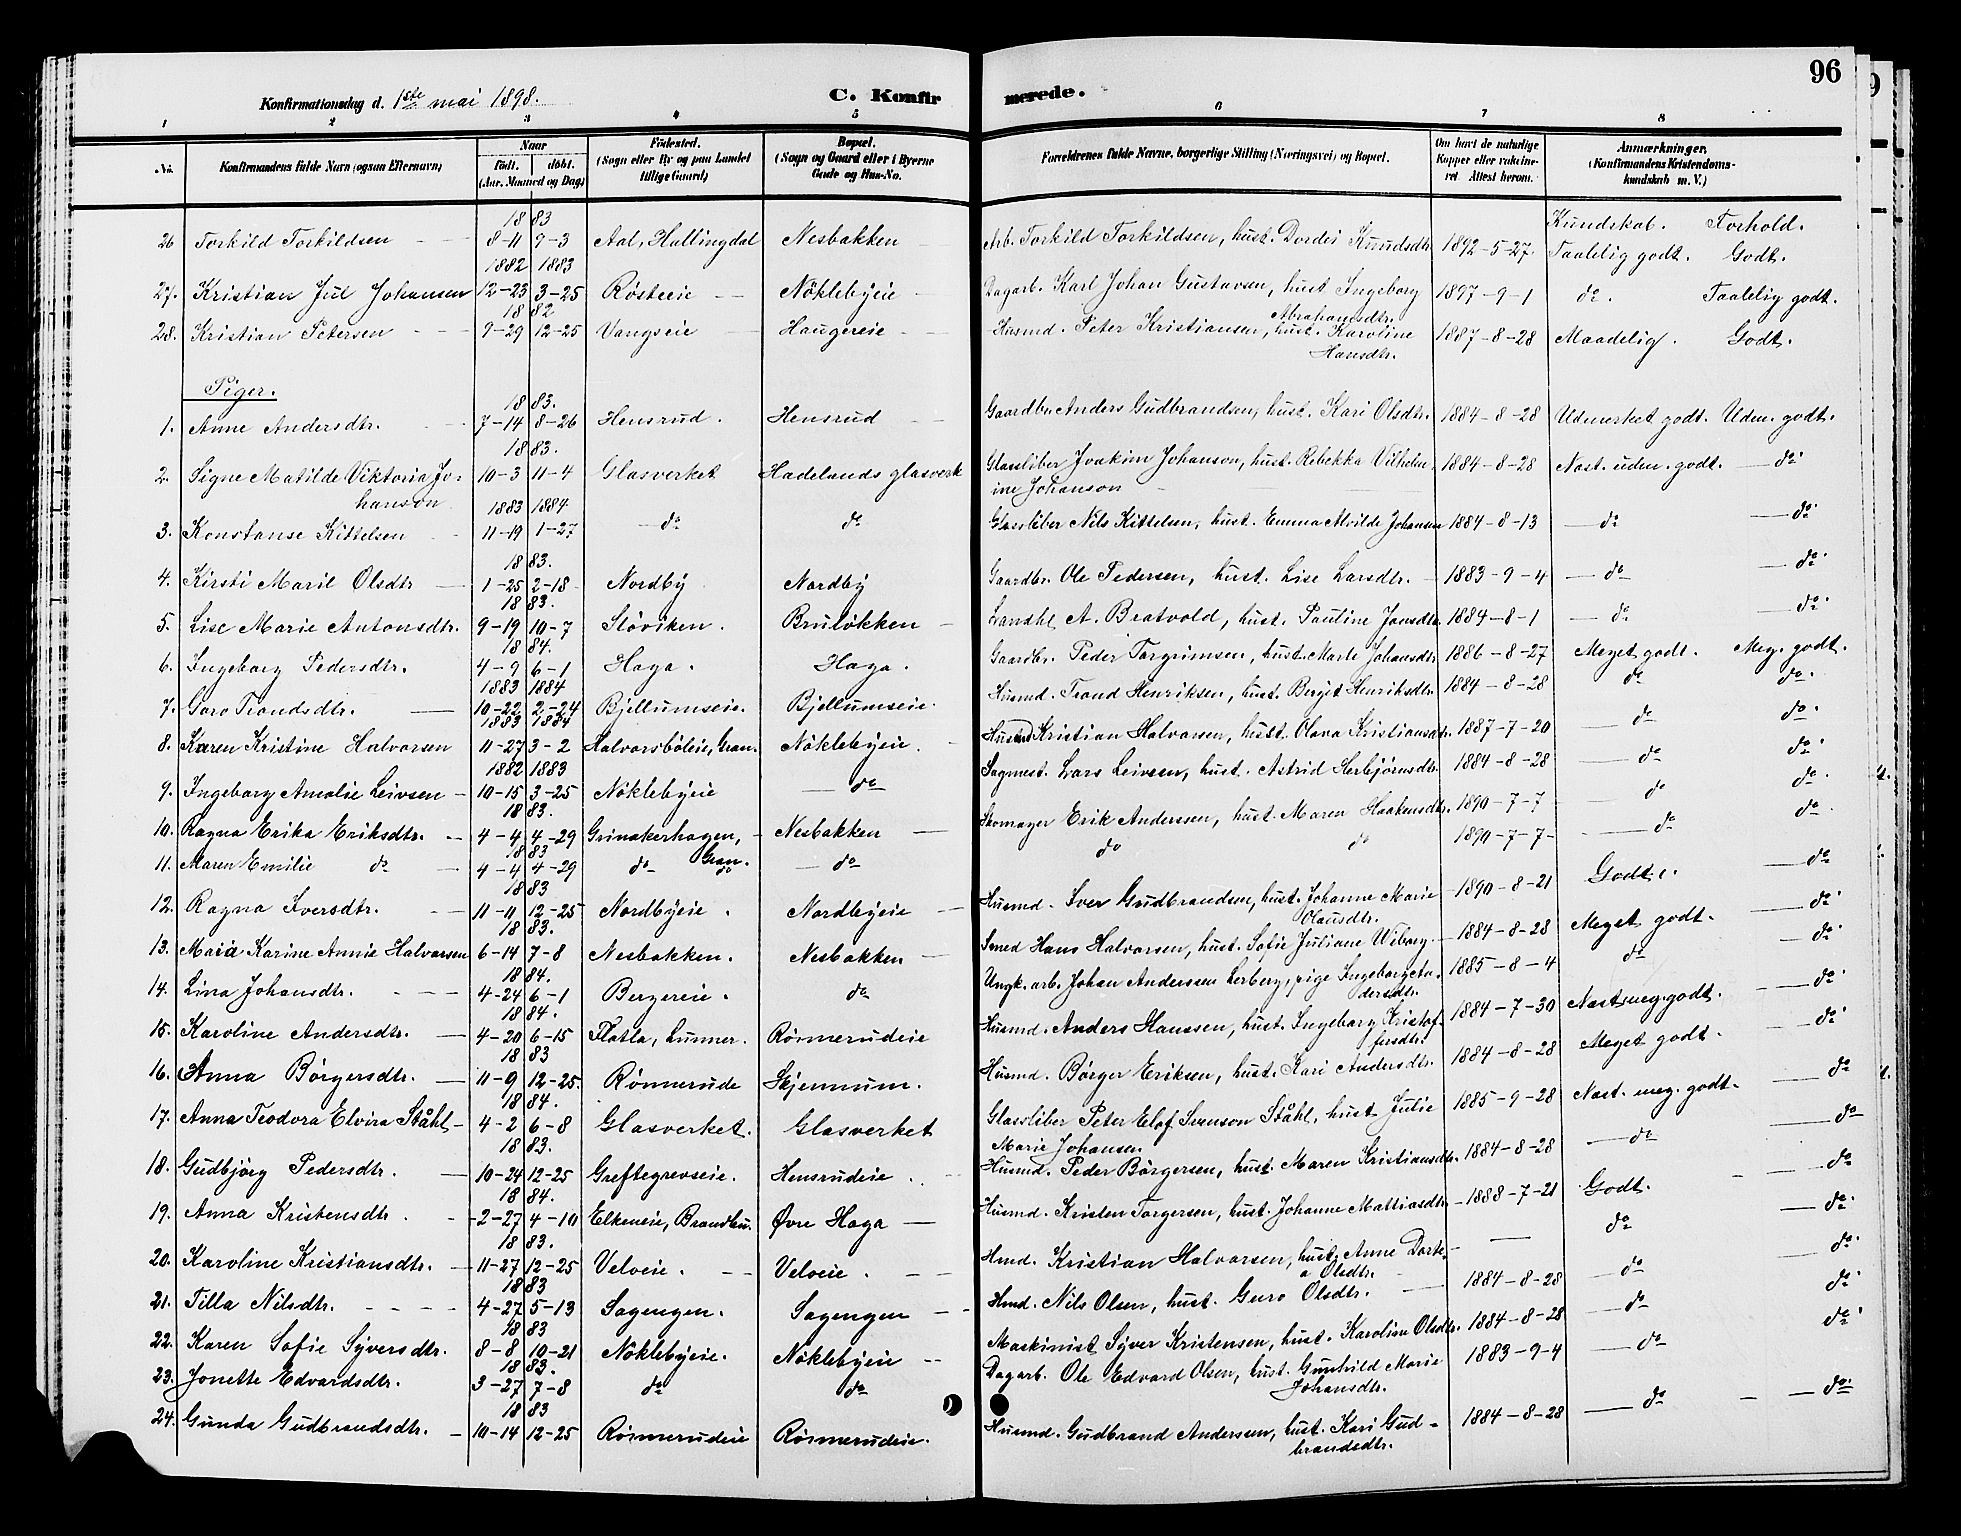 96
Konfirmationsdag d. 1ste mai 1898.
C. Konfirmerede.
1 2 3 4 5 6 7 8
No. Konfirmandens fulde Navn (ogsaa Efternavn) Naar født. døbt. (Aar, Maaned og Dag) Fødested. (Sogn eller By og paa Landet tillige Gaard) Bopæl. (Sogn og Gaard eller i Byerne Gade og Hus-No. Forældrenes fulde Navne, borgerlige Stilling (Næringsvei) og Bopæl. Om havt de naturlige Kopper eller vaccineret. Attest herom. Anmærkninger, (Konfirmandens Kristendomskundskab m. V.)
Kundskab. Forhold.
1883
26 Torkild Torkildsen 8-11 9-3 Aal, Hallingdal Nesbakken Arb. Torkild Torkildsen, hust. Dordei Knudsdtr. 1892-5-27. Taalelig godt. Godt.
1882 1883
27. Kristian Jul Johansen 12-23 3-25 Røsteeie Nöklebyeie Dagarb. Karl Johan Gustavsen, hust. Ingeborg Abrahamsdtr. 1897-9-1 do. Taalelig godt.
1882
28. Kristian Petersen 9-29 12-25 Vangseie Haugereie Husmd. Peter Kristiansen, hust. Karoline Hansdtr. 1887-8-28 Maadelig. Godt.
Piger.
1883.
1. Anne Andersdtr. 7-14 8-26 Hensrud. Hensrud Gaardbr. Anders Gudbrandsen, hust. Kari Olsdtr. 1884-8-28 Udmerket godt. Udm. godt.
1883.
2. Signe Matilde Viktoria Johanson 10-3 11-4 Glasverket Hadelands glasverk Glassliber Joakim Johanson, hust. Rebekka Vilhelmine Johanson 1884-8-28 Næst. udm. godt. do
1883 1884
3. Konstanse Kittelsen 11-19 1-27 do do Glassliber Nils Kittelsen, hust. Emma Alvilde Johansen 1884-8-13 do do
1883.
4. Kirsti Maril Olsdtr 1-25 2-18 Nordby Nordby Gaardbr. Ole Pedersen, hust. Lise Larsdtr. 1883-9-4 do do
1883.
5. Lise Marie Antonsdtr. 9-19 10-7 Slöviken. Bruløkken Landhl. A. Bratvold, hust. Pauline Jansdtr. 1884-8-1 do do
1884.
6. Ingeborg Pedersdtr. 4-9 6-1 Haga. Haga. Gaardbr. Peder Torgrimsen, hust. Marte Johansdtr. 1886-8-27 Meget godt. Meg. godt.
1883 1884
7. Goro Trondsdtr. 10-22 2-24 Bjellumseie. Bjellumseie. Husmd. Trond Henriksen, hust. Berget Henriksdtr. 1884-8-28 do do.
1883 1884
8. Karen Kristine Halvorsen 11-27 3-2 Halvorsböleie, Gran. Nöklebyeie. Husmd Kristian Halvorsen, hust. Olava Kristiansdtr. 1887-7-20 do do.
1882 1883
9. Ingeborg Amalie Leivsen 10-15 3-25 Nöklebyeie do Sagmest. Lars Leivsen, hust. Astrid Herbjørnsdtr. 1884-8-28 do do
1883.
10. Ragna Erika Eriksdtr. 4-4 4-29 Grinakerhagen, Gran. Nesbakken Skomager Erik Anderssen, hust. Maren Haakensdtr. 1890-7-7 do do
1883
11. Maren Emilie do 4-4 4-29 do do do do do 1890-7-7 do do
1883
12. Ragna Iversdtr. 11-11 12-25 Nordbyeie. Nordbyeie Husmd. Iver Gudbrandsen, hust. Johanne Marie Olausdtr. 1890-8-21 Godt. do
1883.
13. Maia Karine Annie Halvorsen 6-14 7-8 Nesbakken. Nesbakken Smed Hans Halvorsen, hust. Sofie Juliane Wiborg 1884-8-28 Meget godt. do
1884.
14. Lina Johansdtr. 4-24 6-1 Bergereie. do Ungk. arb. Johan Andersen Lerberg, pige Ingeborg Andersdtr. 1885-8-4 do do
1884.
15. Karoline Andersdtr. 4-20 6-15 Flatla, Lunner. Rönnerudeie Husmd. Anders Hanssen, hust. Ingeborg Kristoffersdtr. 1884-7-30 Næst meg. godt. do
1883
16. Anna Børgersdtr. 11-9 12-25. Rönnerude Skjennum. Husmd. Børger Eriksen, hust. Kari Andersdtr. 1884-8-28 Meget godt. do
1884.
17. Anna Teodora Elvira Ståhl 4-2 6-8 Glasverket. Glasverket Glassliber Peter Elof Svenson Ståhl, hust. Julie Marie Johansen 1885-9-28 Næst. meg. godt. do
1883.
18. Gudbjörg Pedersdtr. 10-24 12-25 Greftegrevseie. Hensrudeie Husmd. Peder Børgersen, hust. Maren Kristiansdtr. 1884-8-28 do do
1884.
19. Anna Kristensdtr 2-27 4-10 Elkeneie, Brandbu. Øvre Haga Husmd. Kristen Torgersen, hust. Johanne Mattiasdtr. 1888-7-21 Godt. do
1883.
20. Karoline Kristiansdtr. 11-27 12-25 Velveie. Velveie. Hmd. Kristian Halvorsen, hust. Anne Dortea Olsdtr. — do do
1883
21. Tilla Nilsdtr. 4-27 5-13 Sagengen. Sagengen Hmd. Nils Olsen, hust. Guro Olsdtr. 1884-8-28 do do
1883
22. Karen Sofie Syversdtr. 8-8 10-21 Nöklebyeie. Nöklebyeie Maskinist Syver Kristensen, hust. Karoline Olsdtr. 1884-8-28 do do
1883.
23. Jonette Edvardsdtr. 3-27 7-8 do do Dagarb. Ole Edvard Olsen, hust. Gunhild Marie Johansdtr. 1883-9-4 do do
1883
24. Gunda Gudbrandsdtr. 10-14 12-25 Rönnerudeie Rönnerudeie. Husmd. Gudbrand Andersen, hust. Kari Gudbrandsdtr. 1884-8-28 do do